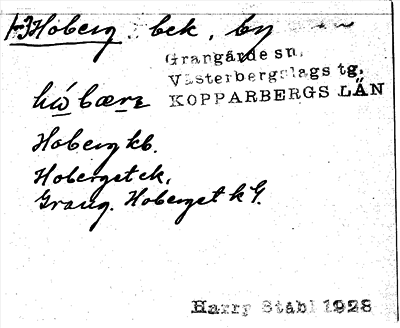 Hoberg, bek. by
Grangärde sn.
Västerbergslags tg.
KOPPARBERGS LÄN
Hoberg kb.
Hoberget ek.
Grang. Hoberget k G.
Harry Ståhl 1928